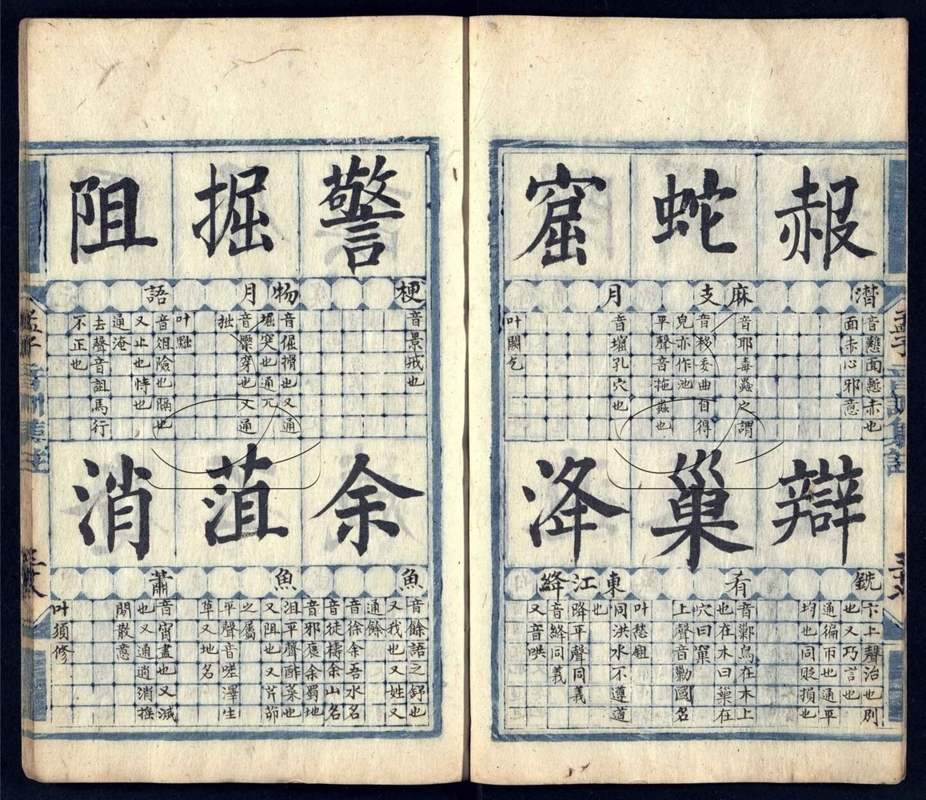 赧
潸
音戁面慙赤也
面赤心邪意
蛇
麻支
音耶毒蟲之謂
音移委曲自得
皃亦作池
平聲音拖蟲也
窟
月
音堀孔穴也
叶闕乞
辯
銑
卞上聲治也別
也又巧言也
通徧帀也通平
均也同貶損也
巢
肴
音鄛鳥在木上
也在木曰巢在
穴曰窠
上聲音勦國名
叶愁
洚
東江絳
同洪水不遵道
也
降平聲同義
音絳同義
又音哄
警
梗
音景戒也
掘
物月
音倔搰也又通
堀突也通兀
音橜穿也又通
拙
叶
阻
語
音俎險也隔也
又止也恃也
通淹
去聲音詛馬行
不正也
余
魚
音餘語之舒也
又我也又姓又
通餘
音徐余吾水名
音徒檮余山名
音邪褒余蜀地
菹
魚
沮平聲酢菜也
又阻也又芹茆
之屬
平聲音嗟澤生
草又地名
消
蕭
音宵盡也又減
也又通逍消搖
閒散意
叶須修
孟子
孟子